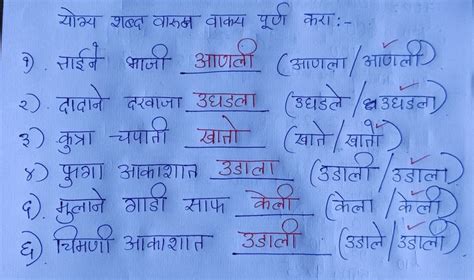 योग्य शब्द वारून वाक्य पूर्ण करा:-
१). ताईने भाजी आणली (आणला / आणली)
२). दादाने दरवाजा उघडला (उघडले / उघडला)
३) कुत्रा चपाती खातो (खाते / खातो)
४) फुगा आकाशात उडाला (उडाली / उडाला)
५. मूलाने गाडी साफ केली (केला / केली)
६) चिमणी आकाशात उडाली (उडाले / उडाली)